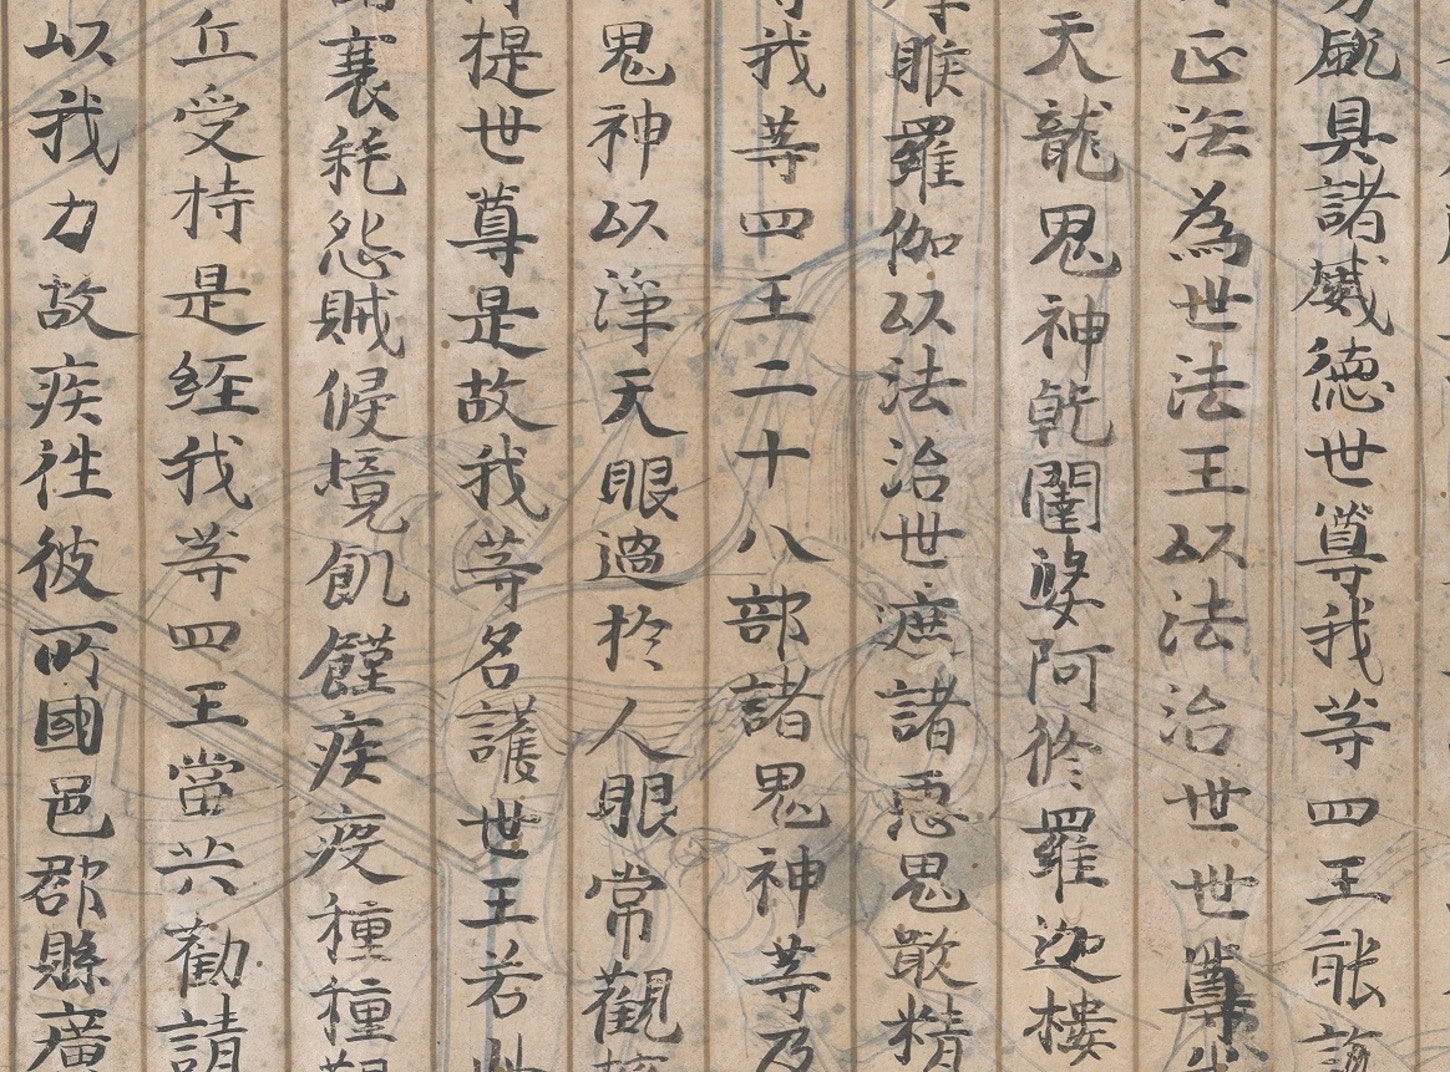 具諸威德世尊我等四王能說
正法為世法王以法治世世尊
天龍鬼神乾闥婆阿修羅迦樓
睺羅伽以法治世遮諸惡鬼噉精
我等四王二十八部諸鬼神等乃
鬼神以淨天眼過於人眼常觀
提世尊是故我等名護世王若此
衰耗怨賊侵境飢饉疾疫種種艱
丘受持是經我等四王當共勸請
以我力故疾往彼所國邑郡縣廣